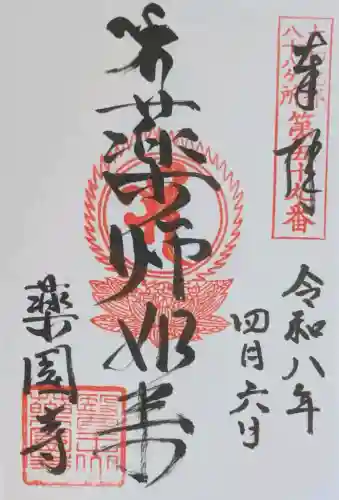 奉拝
八十八ヶ所
第五十九番
令和八年
四月六日
薬師如来
薬園寺